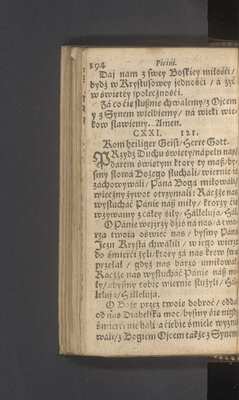 194 Pieśni.
Daj nam z swey Boskiey miłości/
bydź w Krystusowey jedności / a żyć
w świetey społeczności.
Za co cie słusznie chwalemy/ z Ojcem
y z Synem wielbiemy/ na wieki wie-
kow sławiemy. Amen.
CXXI. 121.
Kom heiliger Geist/ Herre Gott.
PRzydź Duchu święty/ napełń nas/
darem świętym ktory ty masz/ by-
smy słowa Bożego słuchali/ wiernie
zachowywali/ Pana Boga miłowali/
wieczny żywot otrzymali: Racżże nas
wysłuchać Panie nasz miły/ ktorzy cie
wzywamy z całey siły/ Halleluja/
O Panie wejrzy dziś na nas/ a
twoia oświeć nas / bysmy Pana
Jezu Krysta chwalili / w iego wierze
do śmierći żyli/ ktory za nas krew swą
przelał / gdyż nas barzo umiłował.
Racżże nas wysłuchać Panie nasz mi-
ły/ abysmy tobie wiernie służyli/
leluja/ Halleluja.
O Boże przez twoie dobroć/ odda
od nas Diabelska moc/ bysmy sie nigdy
śmierći nie bali a ciebie śmiele wyzna-
wali/ z Bogiem Ojcem także z Synem